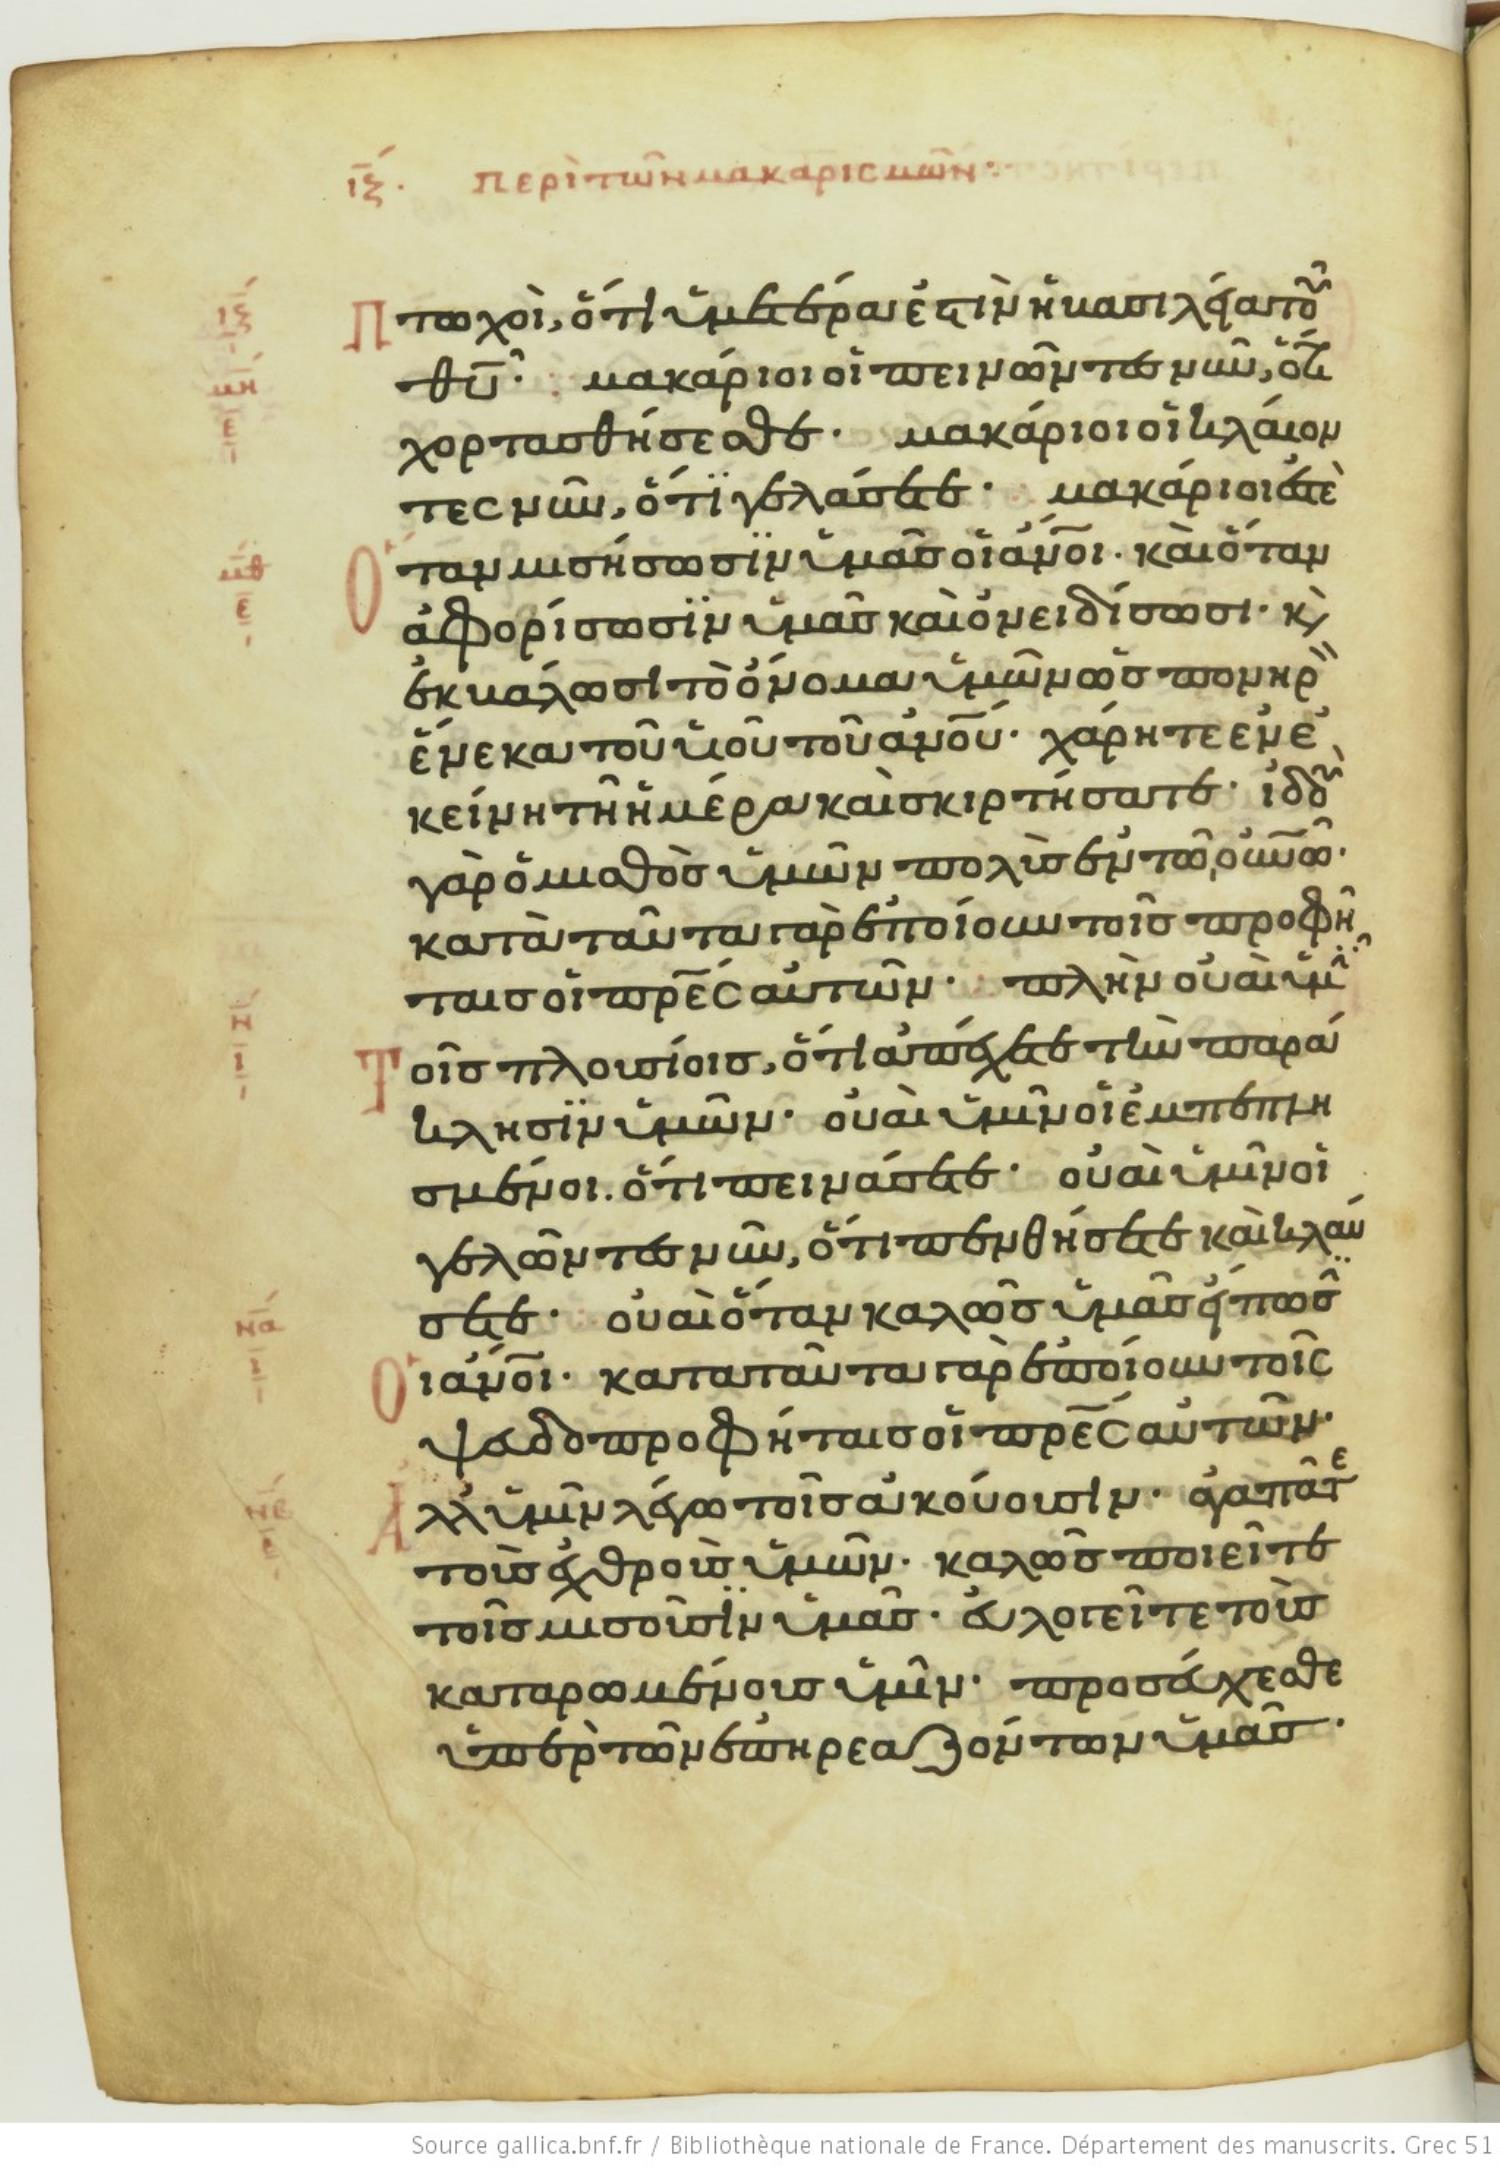 ιϛ. περὶ τῶν μακαρισμῶν·
ιϛ Πτωχοὶ, ὅτι ὑμετέρα ἐστὶν ἡ βασιλεία τοῦ
μη θυ̅· μακάριοι οἱ πεινῶντες νῦν, ὅτι
ε χορτασθήσεσθε· μακάριοι οἱ κλαίον
τες νῦν, ὅτϊ γελάσετε· μακάριοι ἐστὲ
μθ Ὅταν μισήσωσϊν ὑμᾶς οἱ ἄνο̅ι· καὶ ὅταν
ε ἀφορίσωσϊν ὑμᾶς καὶ ὀνειδίσωσι· κ̀
ἐκβάλωσι τὸ ὄνομα ὑμῶν ὡς πονηρ
ἕνεκα τοῦ υἱοῦ τοῦ ἀνο̅ύ· χάρητε ἐν ἐ
κείνη τῆ ἡμέρα καὶ σκιρτήσατε· ἰδοὺ
γὰρ ὁ μισθὸς ὑμῶν πολὺς ἐν τῶ οὐνῶ·
κατὰ ταῦτα γὰρ ἐποίουν τοῖς προφή
ταις οἱ πρε̅ς αὐτῶν· πλὴν οὐαὶ ὑμῖν
ν ι Τοῖς πλουσίοις, ὅτι ἀπέχετε τὴν παρά
κλησϊν ὑμῶν· οὐαὶ ὑμῖν οἱ ἐμπεπλη
σμένοι. ὅτι πεινάσετε· οὐαὶ ὑμῖν οἱ
γελῶντες νῦν, ὅτι πενθήσετε καὶ κλαύ
σετε· οὐαὶ ὅταν καλῶς ὑμᾶς εἴπωσϊ
να ι Οἱ ἄνο̅ι· κατα ταῦτα γὰρ ἐποίουν τοῖς
ψευδοπροφήταις οἱ πρε̅ς αὐτῶν·
νβ Ἀλλ' ὑμῖν λέγω τοῖς ἀκούουσιν· ἀγαπᾶτε
ε τοὺς ἐχθροὺς ὑμῶν· καλῶς ποιεῖτε
τοῖς μισοῦσϊν ὑμᾶς· εὐλογεῖτε τοὺς
καταρωμένους ὑμῖν· προσεύχεσθε
ὑπὲρ τῶν ἐπηρεαζόντων ὑμᾶς·
Source gallica.bnf.fr / Bibliothèque nationale de France. Département des manuscrits. Grec 51